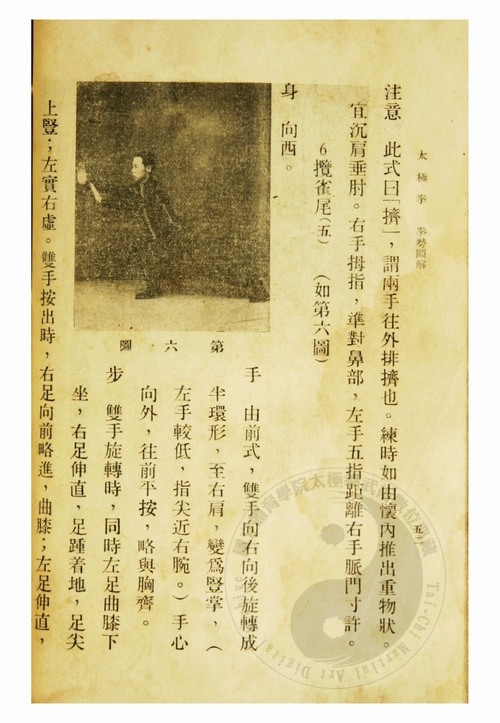 太極拳　拳勢圖解
注意　此式曰「擠」，謂兩手往外排擠也。練時如由懷內推出重物狀。
宜沉肩垂肘。右手拇指，準對鼻部，左手五指距離右手脈門寸許。
6攬雀尾（五）　（如第六圖）
身　向西。
第六圖
手　由前式，雙手向右向後旋轉成
半環形，至右肩，變爲豎掌，（
左手較低，指尖近右腕。）手心
向外，往前平按，略與胸齊。
步　雙手旋轉時，同時左足曲膝下
坐，右足伸直，足踵着地，足尖
上豎；左實右虛。雙手按出時，右足向前略進，曲膝；左足伸直，
Tai-Chi Martial Art Digital